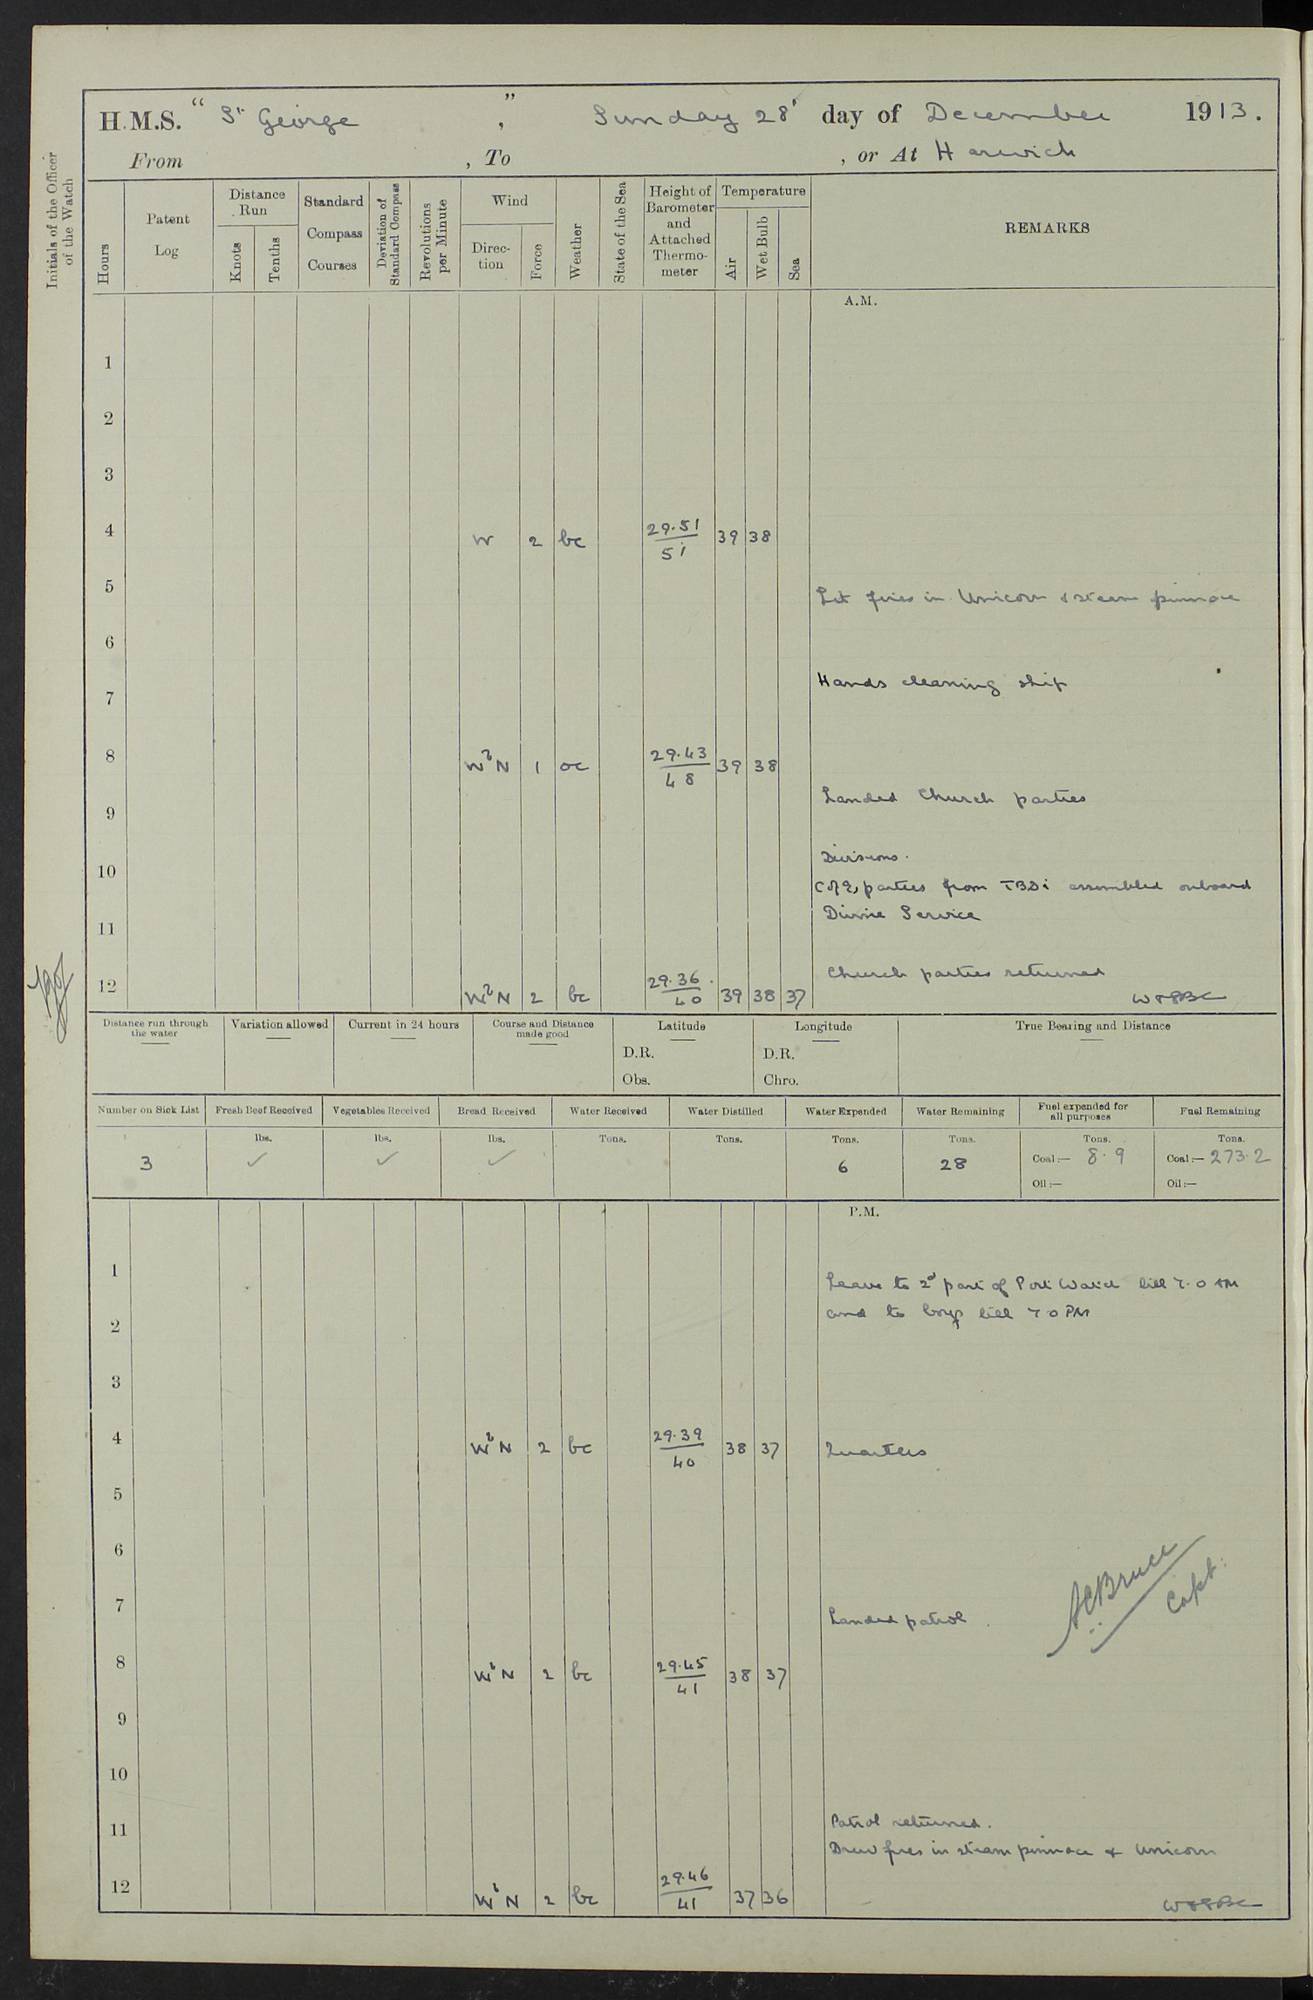 H.M.S. " St George ", Sunday 28' day of December 1913.
From , To , or At Harwich
Initials of the Officer of the Watch
Hours
Patent Log
Distance Run
Knots
Tenths
Standard Compass Courses
Deviation of Standard Compass
Revolutions per Minute
Wind
Direction
Force
Weather
State of the Sea
Height of Barometer and Attached Thermometer
Temperature
Air
Wet Bulb
Sea
REMARKS
A.M.
1
2
3
4 W 2 bc 29.51 51 39 38
5 Lit fires in Unicorn & steam pinnace
6
7 Hands cleaning ship
8 WbN 1 oc 29.43 48 39 38
9 Landed Church parties
10 Divisions.
C of E, parties from TBDs assembled onboard
11 Divine Service
Church parties returned
12 WbN 2 bc 29.36 40 39 38 37
Distance run through the water
Variation allowed
Current in 24 hours
Course and Distance made good
Latitude
D.R.
Obs.
Longitude
D.R.
Chro.
True Bearing and Distance
Number on Sick List Fresh Beef Received Vegetables Received Bread Received Water Received Water Distilled Water Expended Water Remaining Fuel expended for all purposes Fuel Remaining
lbs. lbs. lbs. Tons. Tons. Tons. Tons. Tons. Tons.
3 ✓ ✓ ✓ 6 28 Coal:— 8.9 Coal:— 273.2
Oil:— Oil:—
P.M.
1 Leave to 2d part of Port Watch till 7.0 AM
2 and to boys till 7 0 PM
3
4 WbN 2 bc 29.39 40 38 37 Quarters
5
6
ACBruce
Capt:
7 Landed patrol
8 WbN 2 bc 29.45 41 38 37
9
10
11 Patrol returned.
Drew fires in steam pinnace & Unicorn
12 WbN 2 bc 29.46 41 37 36